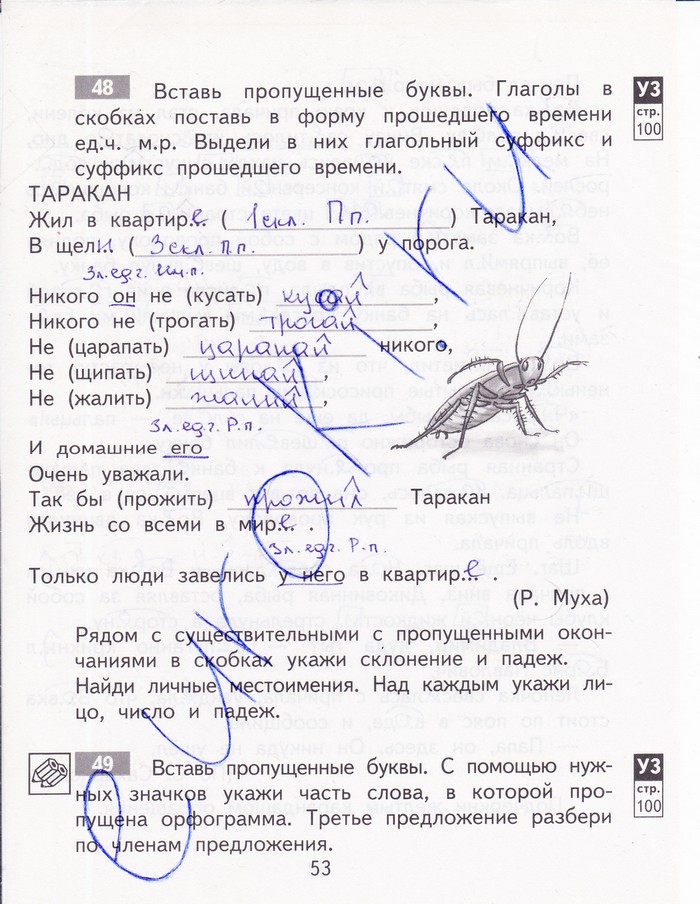 48 Вставь пропущенные буквы. Глаголы в
скобках поставь в форму прошедшего времени
ед.ч. м.р. Выдели в них глагольный суффикс и
суффикс прошедшего времени.
УЗ
стр.
100
ТАРАКАН
Жил в квартир..е. ( 1скл. П.п. ) Таракан,
В щел.и ( 3 скл. П.п. ) у порога.
3л.ед.ч. Им.п.
Никого он не (кусать) кусал ,
Никого не (трогать) трогал ,
Не (царапать) царапал никого,
Не (щипать) щипал ,
Не (жалить) жалил ,
3л.ед.ч. Р.п.
И домашние его
Очень уважали.
Так бы (прожить) прожил Таракан
Жизнь со всеми в мир..е. .
3л.ед.ч. Р.п.
Только люди завелись у него в квартир..е .
(Р. Муха)
Рядом с существительными с пропущенными окон-
чаниями в скобках укажи склонение и падеж.
Найди личные местоимения. Над каждым укажи ли-
цо, число и падеж.
49 Вставь пропущенные буквы. С помощью нуж-
ных значков укажи часть слова, в которой про-
пущена орфограмма. Третье предложение разбери
по членам предложения.
УЗ
стр.
100
53